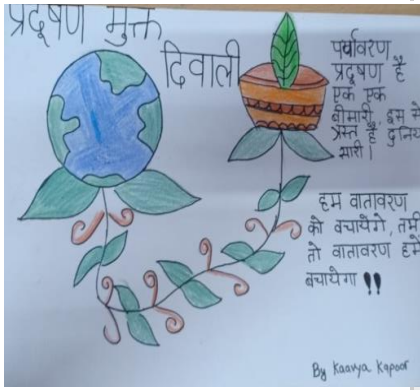 प्रदूषण मुक्त
दिवाली
पर्यावरण
प्रदूषण है
एक एक
बीमारी, इस से
ग्रस्त है दुनिया
सारी।
हम वातावरण
को बचायेंगे, तभी
तो वातावरण हमें
बचायेगा !!
By Kaavya Kapoor